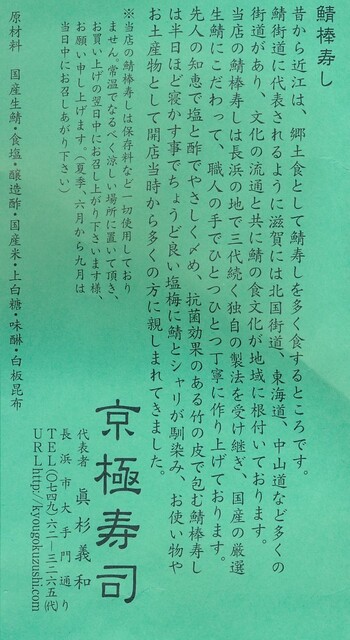 鯖棒寿し
昔から近江は、郷土食として鯖寿しを多く食するところです。
鯖街道に代表されるように滋賀には北国街道、東海道、中山道など多くの
街道があり、文化の流通と共に鯖の食文化が地域に根付いております。
当店の鯖棒寿しは長浜の地で三代続く独自の製法を受け継ぎ、国産の厳選
生鯖にこだわって、職人の手でひとつひとつ丁寧に作り上げております。
先人の知恵で塩と酢でやさしく〆め、抗菌効果のある竹の皮で包む鯖棒寿し
は半日ほど寝かす事でちょうど良い塩梅に鯖とシャリが馴染み、お使い物や
お土産物として開店当時から多くの方に親しまれてきました。
※当店の鯖棒寿しは保存料など一切使用しており
ません。常温でなるべく涼しい場所に置いて頂き、
お買い上げの翌日中にお召し上がり下さいます様、
お願い申し上げます。（夏季、六月から九月は
当日中にお召しあがり下さい）
原材料　国産生鯖・食塩・醸造酢・国産米・上白糖・味醂・白板昆布
京極寿司
代表者　眞杉義和
長浜市大手門通り
TEL(〇七四九)六二―三二六五(代)
URL http://kyougokuzushi.com